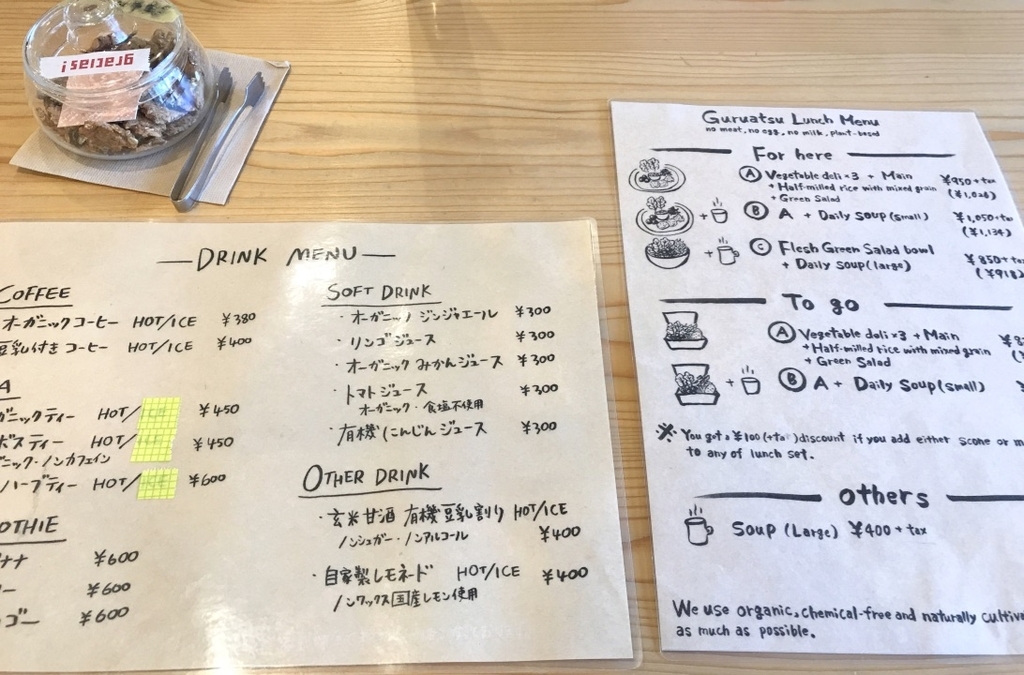 gracias!
DRINK MENU
COFFEE
オーガニックコーヒー HOT/ICE ¥380
豆乳付きコーヒー HOT/ICE ¥400
ガニックティー HOT/ ¥450
ボスティー HOT/ ¥450
ニック・ノンカフェイン
ハーブティー HOT/ ¥600
OTHIE
ナナ ¥600
ー ¥600
ゴー ¥600
SOFT DRINK
・オーガニック ジンジャエール ¥300
・リンゴジュース ¥300
・オーガニック みかんジュース ¥300
・トマトジュース ¥300
オーガニック・食塩不使用
・有機にんじんジュース ¥300
OTHER DRINK
・玄米甘酒 有機豆乳割り HOT/ICE
ノンシュガー・ノンアルコール ¥400
・自家製レモネード HOT/ICE ¥400
ノンワックス国産レモン使用
Guruatsu Lunch Menu
no meat, no egg, no milk, plant-based
For here
A Vegetable deli×3 + Main ¥950+tax
+ Half-milled rice with mixed grain (¥1,026)
+ Green Salad
B A + Daily Soup (small) ¥1,050+tax
(¥1,134)
C Flesh Green Salad bowl ¥850+tax
+ Daily Soup (large) (¥918)
To go
A Vegetable deli×3 + Main
+ Half-milled rice with mixed grain
+ Green Salad
B A + Daily Soup (small) ¥
※ You get a ¥100 (+tax) discount if you add either scone or m
to any of lunch set.
others
Soup (Large) ¥400 + tax
We use organic, chemical-free and naturally cultive
as much as possible.